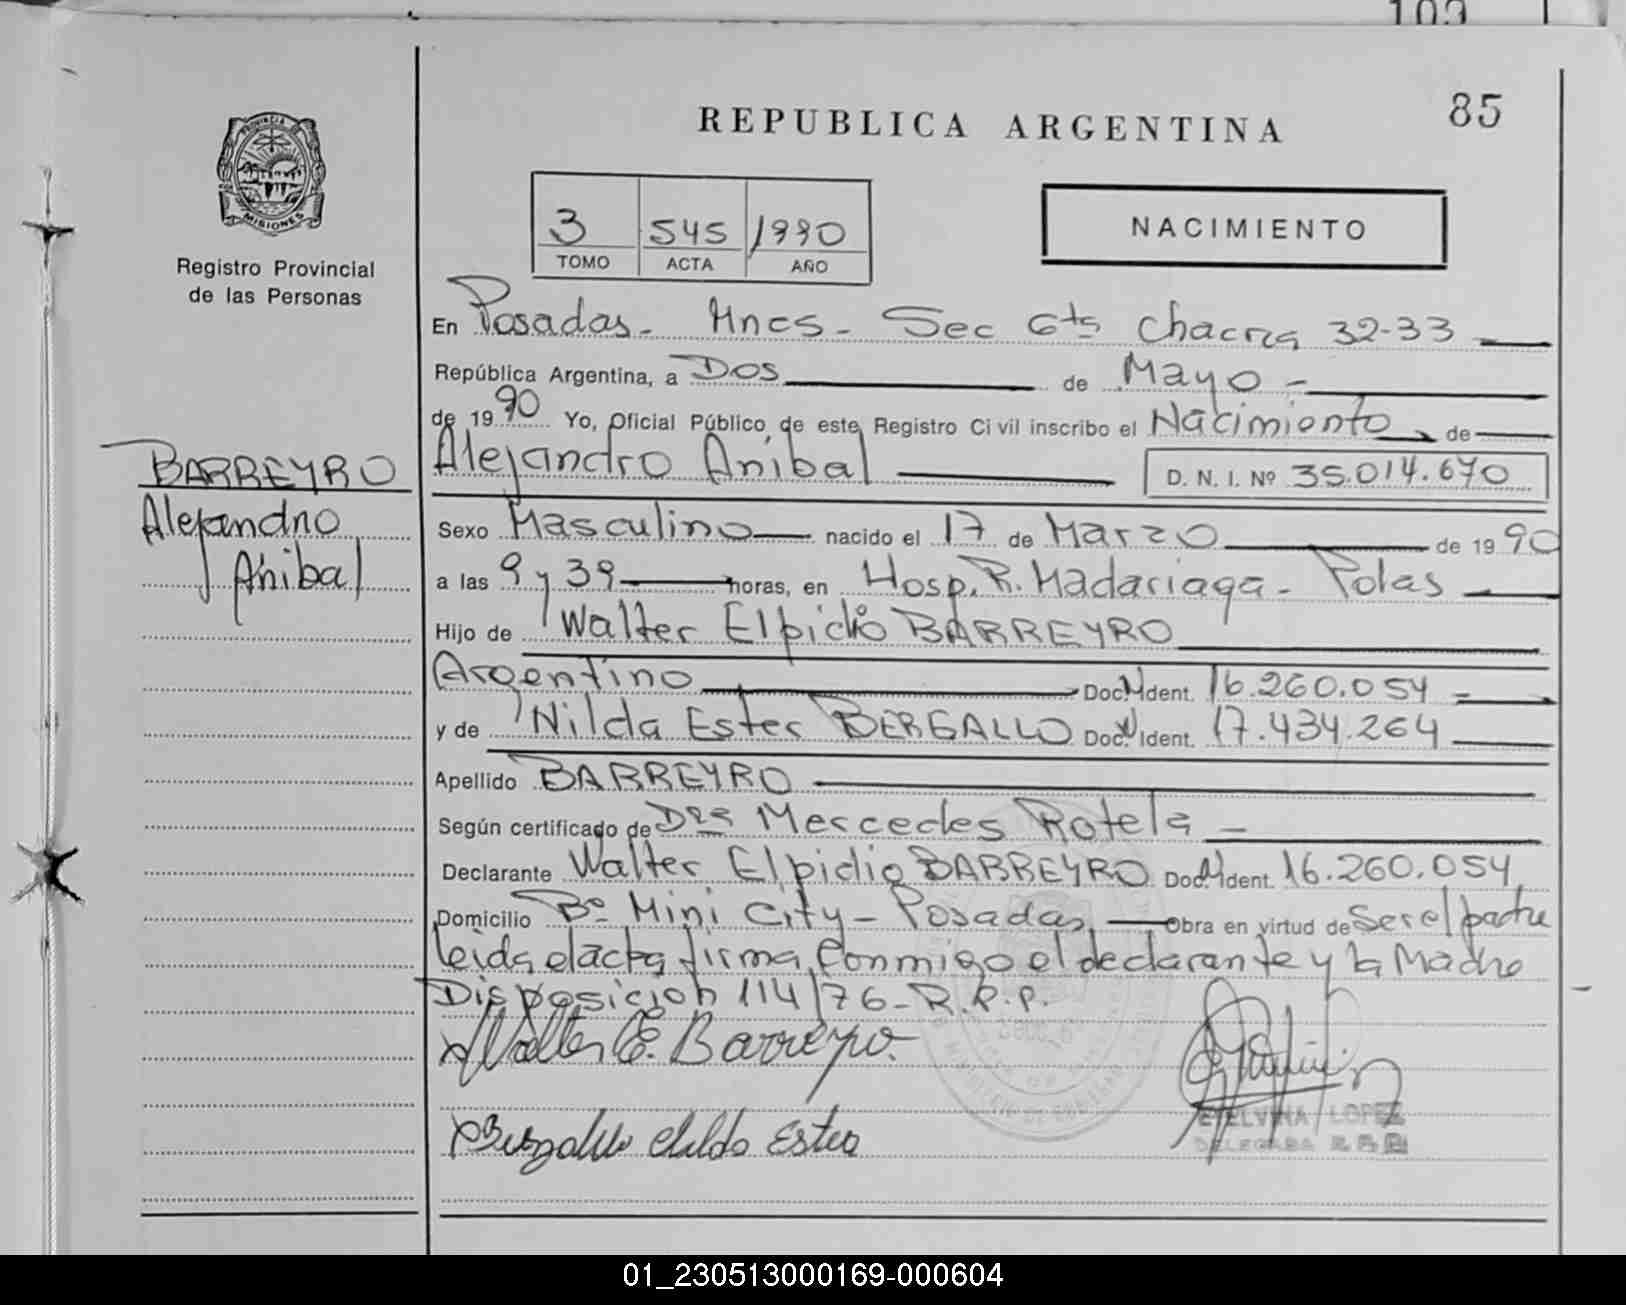 103
85
REPUBLICA ARGENTINA
PROVINCIA DE
MISIONES
Registro Provincial
de las Personas
3 545 1990
TOMO ACTA AÑO
NACIMIENTO
En Posadas - Mnes - Sec 6ta Chacra 32-33
República Argentina, a Dos de Mayo -
de 1990 Yo, Oficial Público de este Registro Civil inscribo el Nacimiento de
Alejandro Anibal D. N. I. Nº 35.014.670
BARREYRO
Alejandro
Anibal
Sexo Masculino nacido el 17 de Marzo de 1990
a las 9 y 39 horas, en Hosp. R. Madariaga - Pdas
Hijo de Walter Elpidio BARREYRO
Argentino Doc. Ident. 16.260.054
y de Nilda Ester BERGALLO Doc. Ident. 17.434.264
Apellido BARREYRO
Según certificado de Dra Mercedes Rotela
Declarante Walter Elpidio BARREYRO Doc. Ident. 16.260.054
Domicilio Bº Mini City - Posadas Obra en virtud de ser el padre
leida el acta firma conmigo el declarante y la Madre
Disposicion 114/76 - R.P.P.
Walter E. Barreyro.
Bergallo Nilda Ester
ETELVINA LOPEZ
DELEGADA
01_230513000169-000604